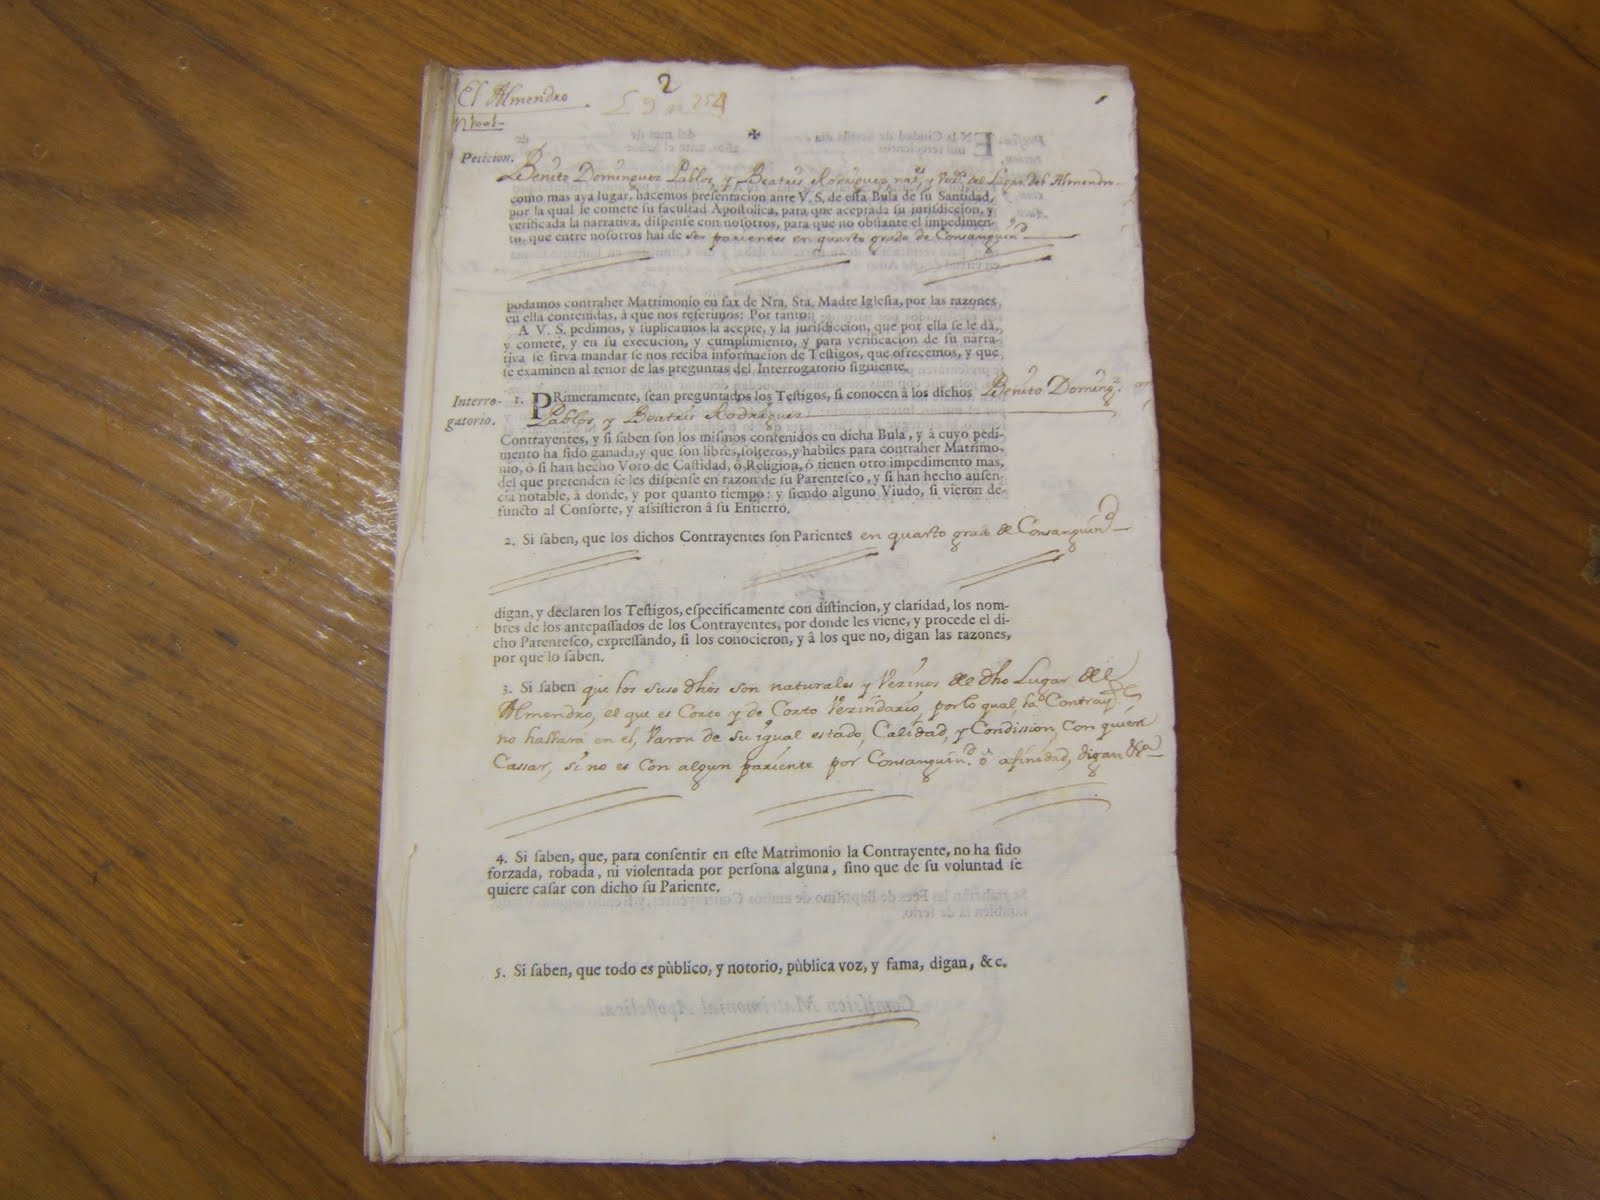 El Almendro
2
Peticion.
Benito Dominguez Pablos, y Beatris Rodriguez, nat.s y vez.s del Lugar del Almendro
como mas aya lugar, hacemos presentacion ante V. S. de esta Bula de su Santidad,
por la qual se comete su facultad Apostolica, para que aceptada su jurisdiccion, y
verificada la narrativa, dispense con nosotros, para que no obstante el impedimen-
to, que entre nosotros hai de ser parientes en quarto grado de Consanguin.d
podamos contraher Matrimonio en fax de Nra. Sta. Madre Iglesia, por las razones
en ella contenidas, à que nos referimos: Por tanto:
A V. S. pedimos, y suplicamos la acepte, y la jurisdiccion, que por ella se le dà,
y comete, y en su execucion, y cumplimiento, y para verificacion de su narra-
tiva se sirva mandar se nos reciba informacion de Testigos, que ofrecemos, y que
se examinen al tenor de las preguntas del Interrogatorio siguiente.
Interro-
gatorio.
1. PRimeramente, sean preguntados los Testigos, si conocen à los dichos Benito Doming.z
Pablos, y Beatris Rodriguez
Contrayentes, y si saben son los mismos contenidos en dicha Bula, y à cuyo pedi-
mento ha sido ganada, y que son libres, solteros, y habiles para contraher Matrimo-
nio, ò si han hecho Voto de Castidad, ò Religion, ò tienen otro impedimento mas,
del que pretenden se les dispense en razon de su Parentesco, y si han hecho ausen-
cia notable, à donde, y por quanto tiempo: y siendo alguno Viudo, si vieron de-
functo al Consorte, y assistieron à su Entierro.
2. Si saben, que los dichos Contrayentes son Parientes en quarto grado de Consanguin.d
digan, y declaren los Testigos, especificamente con distincion, y claridad, los nom-
bres de los antepassados de los Contrayentes, por donde les viene, y procede el di-
cho Parentesco, expressando, si los conocieron, y à los que no, digan las razones,
por que lo saben.
3. Si saben que los suso dhos son naturales y Vezinos de dho Lugar del
Almendro, el que es Corto y de Corto Vezindario, por lo qual, la Contray.te
no hallara en el, Varon de su igual estado, Calidad, y Condission, con quien
Cassar, si no es Con algun pariente por Consanguin.d ô afinidad, digan &a
4. Si saben, que, para consentir en este Matrimonio la Contrayente, no ha sido
forzada, robada, ni violentada por persona alguna, sino que de su voluntad se
quiere casar con dicho su Pariente.
5. Si saben, que todo es pùblico, y notorio, pùblica voz, y fama, digan, &c.